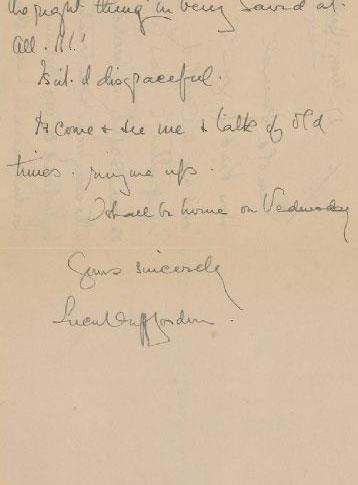 the right thing in being saved at
all. !!!
Isn't it disgraceful.
Do come & see me & talk of old
times. ring me up.
I shall be home on Wednesday
Yours sincerely
Lucile Duff Gordon.